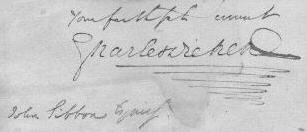 Your faithful servant
Charles Dickens
John Gibbon Esquire